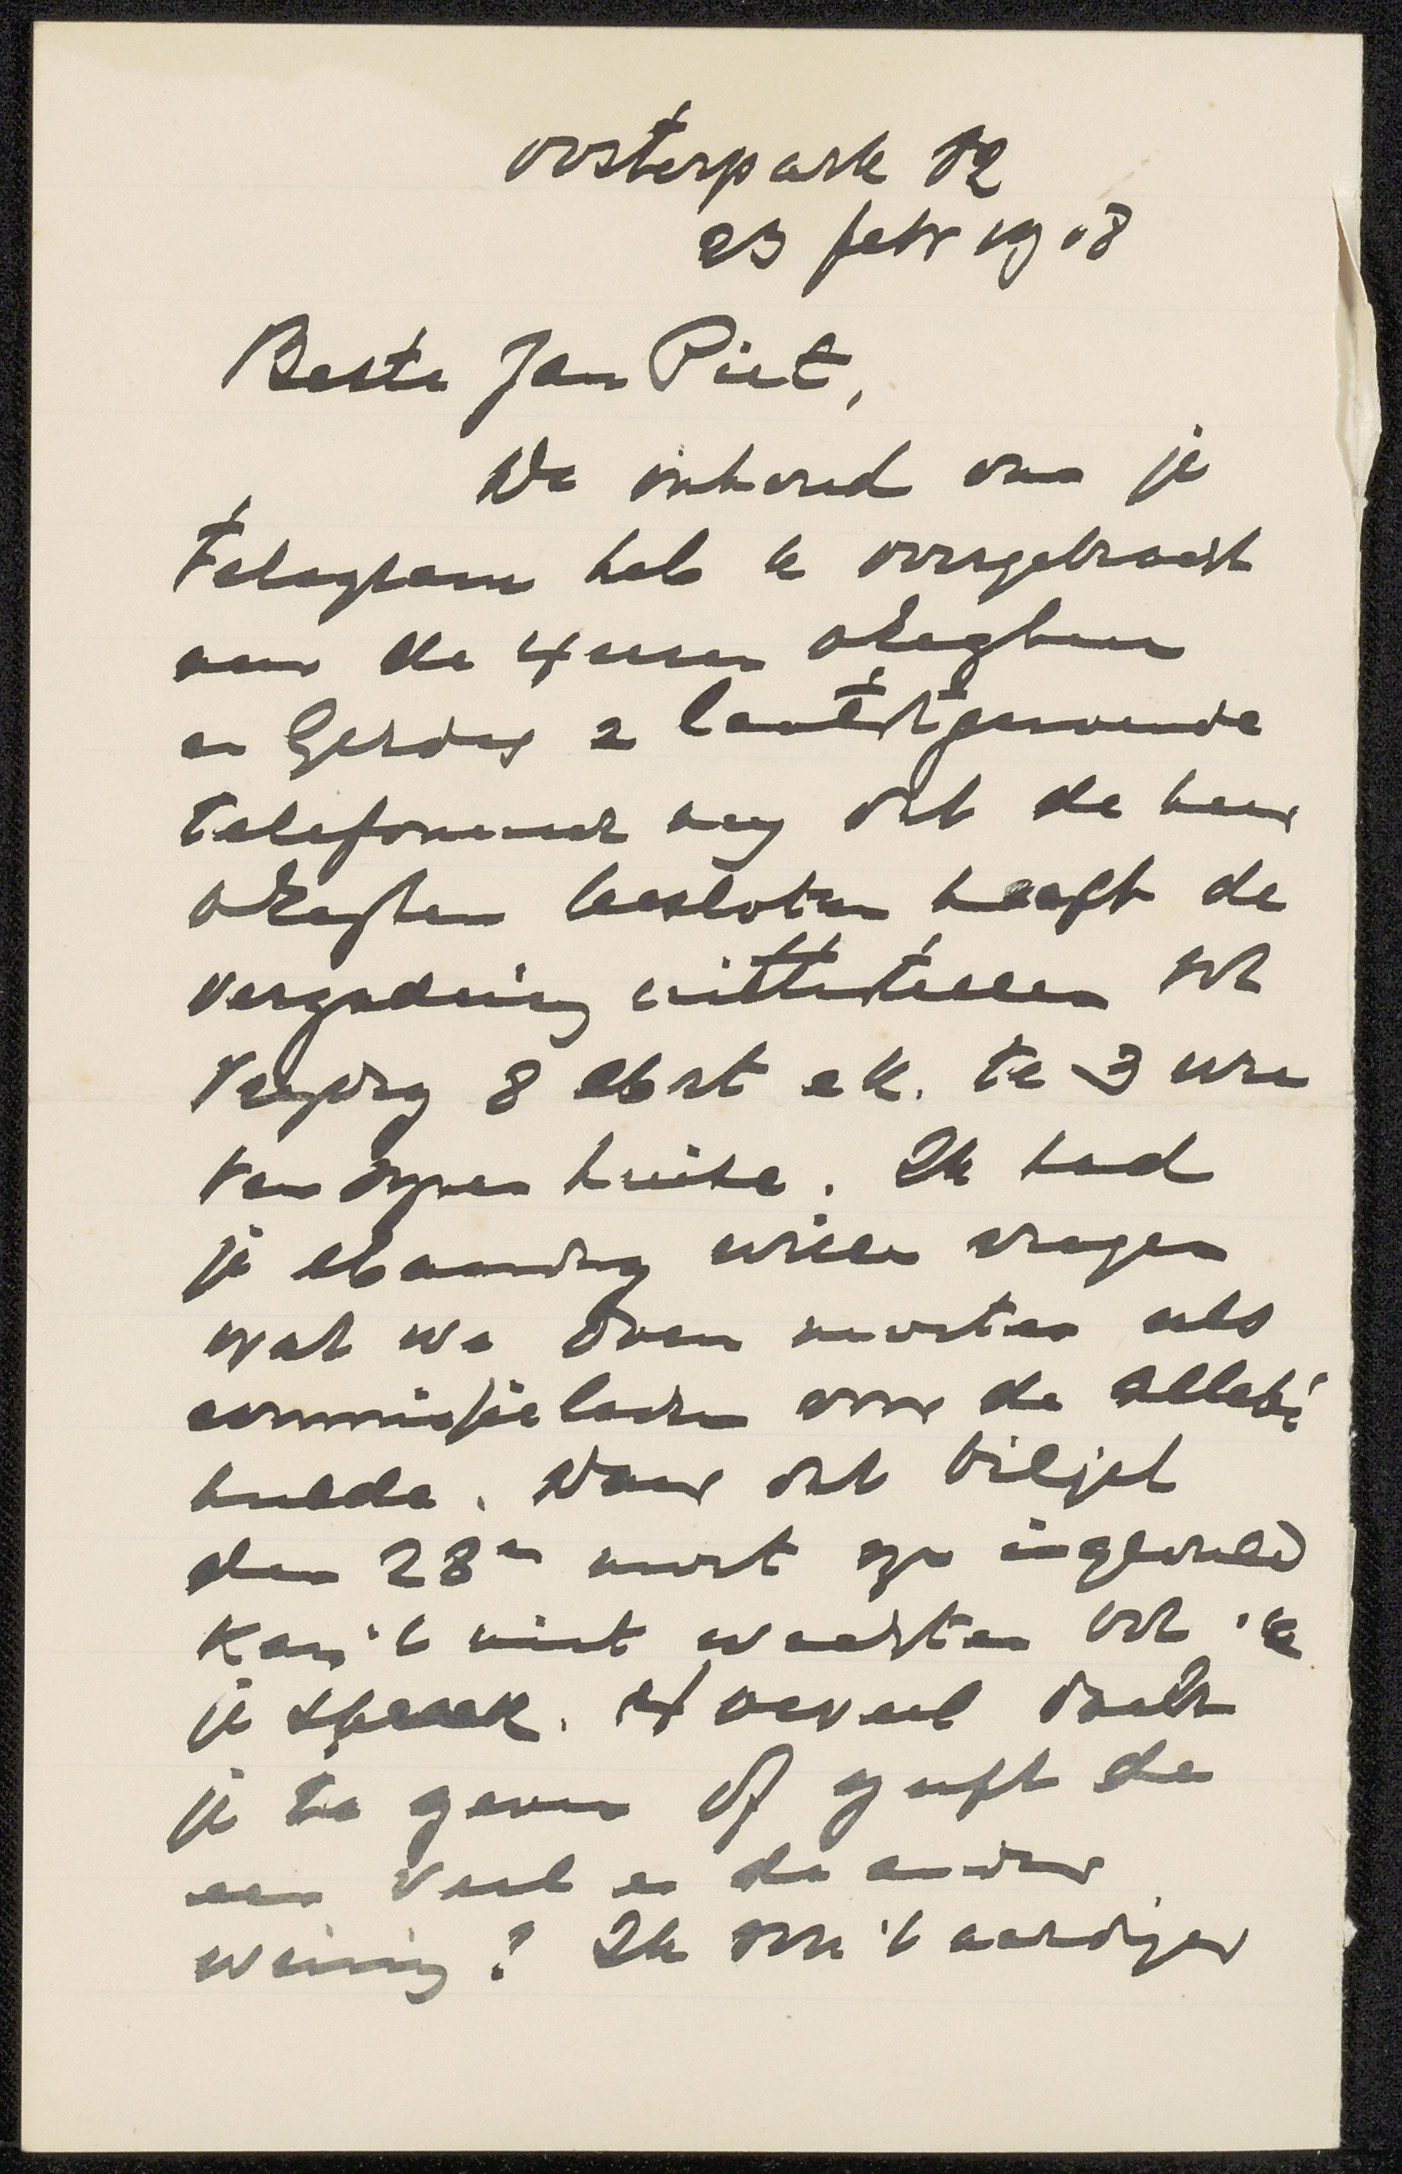 Oosterpark 82
23 febr 1918
Beste Jan Piet,
De inhoud van je
telegram heb ik overgebracht
aan de heeren
en Gerdes &
telefoneerde mij dat de heer
besloten heeft de
vergadering uittestellen tot
Vrijdag 8 Mrt ek. te 3 ure
ten zijnen huize. Ik had
je Maandag willen vragen
wat we doen moeten als
commissieleden voor de Allebé
hulde. Daar dat biljet
den 28n moet zijn ingevuld
kan 't niet wachten tot ik
je spreek. Hoeveel dacht
je te geven of geeft de
een veel en de ander
weinig? Ik vond 't aardiger